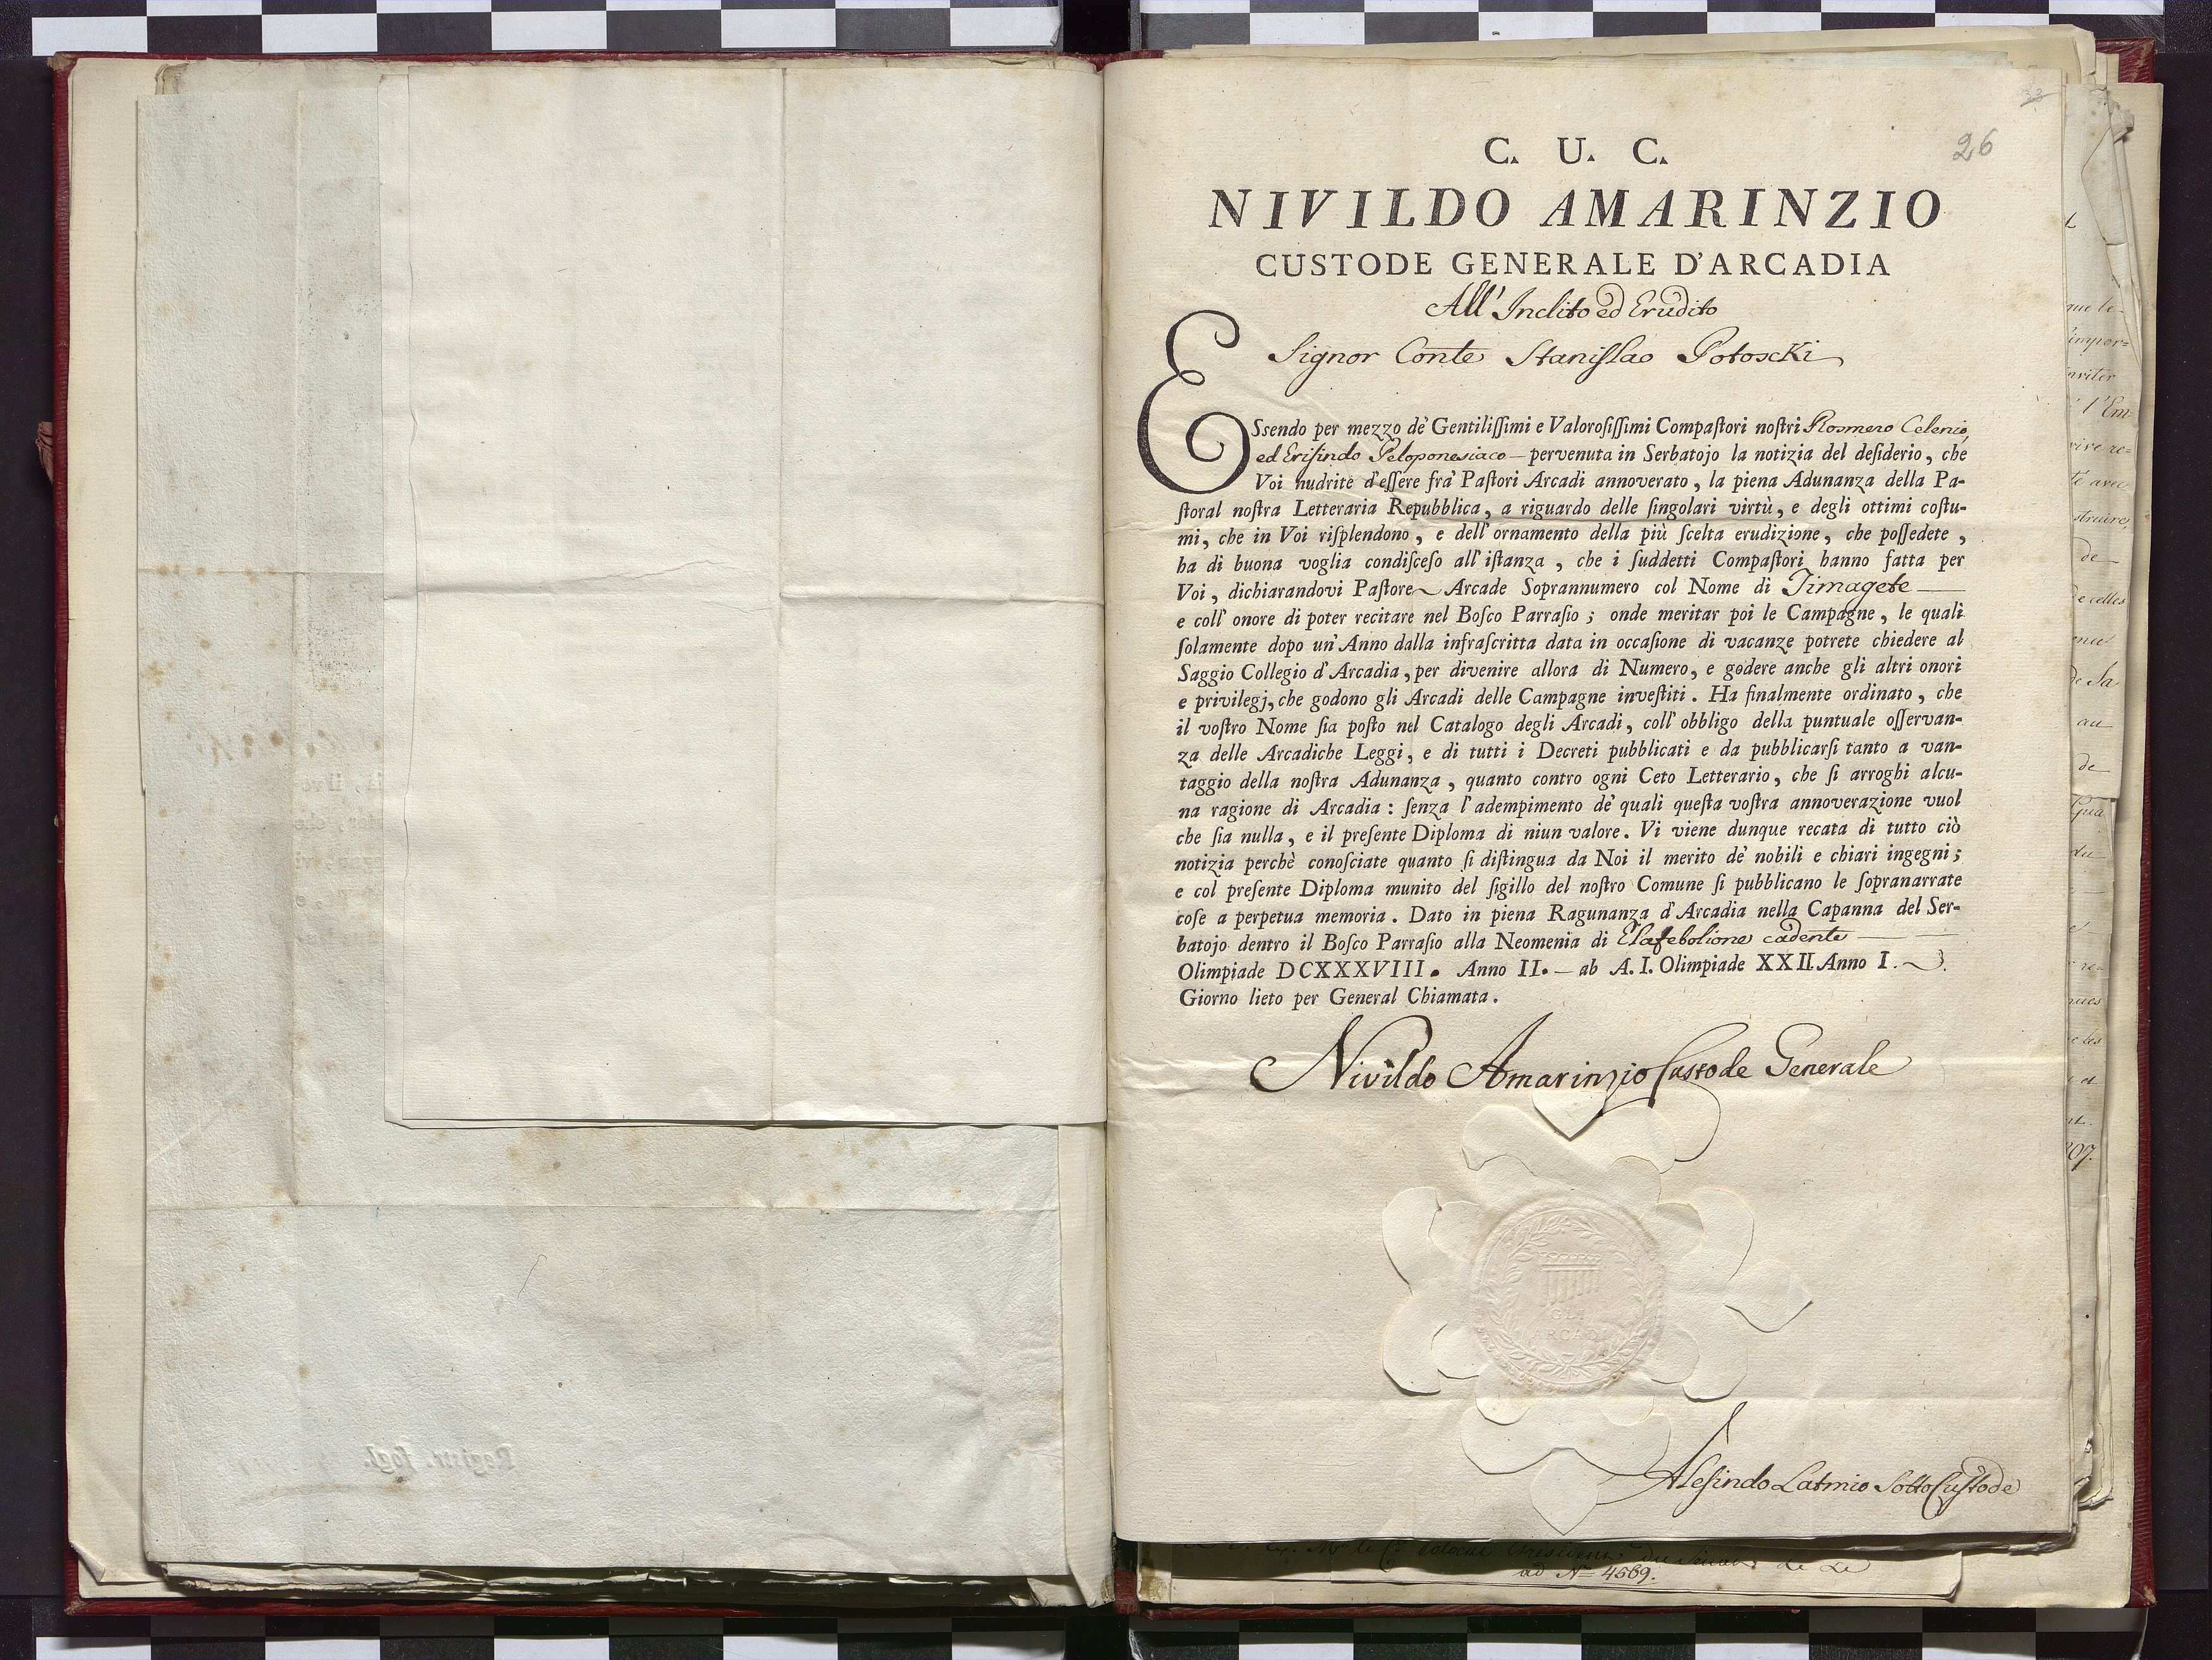 26
C. U. C.
NIVILDO AMARINZIO
CUSTODE GENERALE D'ARCADIA
All' Inclito ed Erudito
Signor Conte Staniſlao Potoscki
ESsendo per mezzo de' Gentiliſſimi e Valoroſiſſimi Compaſtori noſtri Rosmero Celenio,
ed Eriſindo Peloponesiaco — pervenuta in Serbatojo la notizia del deſiderio, che
Voi nudrite d'eſſere fra' Paſtori Arcadi annoverato, la piena Adunanza della Pa-
ſtoral noſtra Letteraria Repubblica, a riguardo delle ſingolari virtù, e degli ottimi coſtu-
mi, che in Voi riſplendono, e dell' ornamento della più ſcelta erudizione, che poſſedete,
ha di buona voglia condiſceſo all' iſtanza, che i ſuddetti Compaſtori hanno fatta per
Voi, dichiarandovi Paſtore Arcade Soprannumero col Nome di Timagete
e coll' onore di poter recitare nel Boſco Parraſio; onde meritar poi le Campagne, le quali
ſolamente dopo un' Anno dalla infraſcritta data in occaſione di vacanze potrete chiedere al
Saggio Collegio d' Arcadia, per divenire allora di Numero, e godere anche gli altri onori
e privilegj, che godono gli Arcadi delle Campagne inveſtiti. Ha finalmente ordinato, che
il voſtro Nome ſia poſto nel Catalogo degli Arcadi, coll' obbligo della puntuale oſſervan-
za delle Arcadiche Leggi, e di tutti i Decreti pubblicati e da pubblicarſi tanto a van-
taggio della noſtra Adunanza, quanto contro ogni Ceto Letterario, che ſi arroghi alcu-
na ragione di Arcadia: ſenza l' adempimento de' quali queſta voſtra annoverazione vuol
che ſia nulla, e il preſente Diploma di niun valore. Vi viene dunque recata di tutto ciò
notizia perchè conoſciate quanto ſi diſtingua da Noi il merito de' nobili e chiari ingegni;
e col preſente Diploma munito del ſigillo del noſtro Comune ſi pubblicano le ſopranarrate
coſe a perpetua memoria. Dato in piena Ragunanza d' Arcadia nella Capanna del Ser-
batojo dentro il Boſco Parraſio alla Neomenia di Elafebolione cadente
Olimpiade DCXXXVIII. Anno II. — ab A. I. Olimpiade XXII Anno I.
Giorno lieto per General Chiamata.
Nivildo Amarinzio Custode Generale
GLI
ARCADI
Aleſindo Latmio Sotto Cuſtode
ad N° 4569.